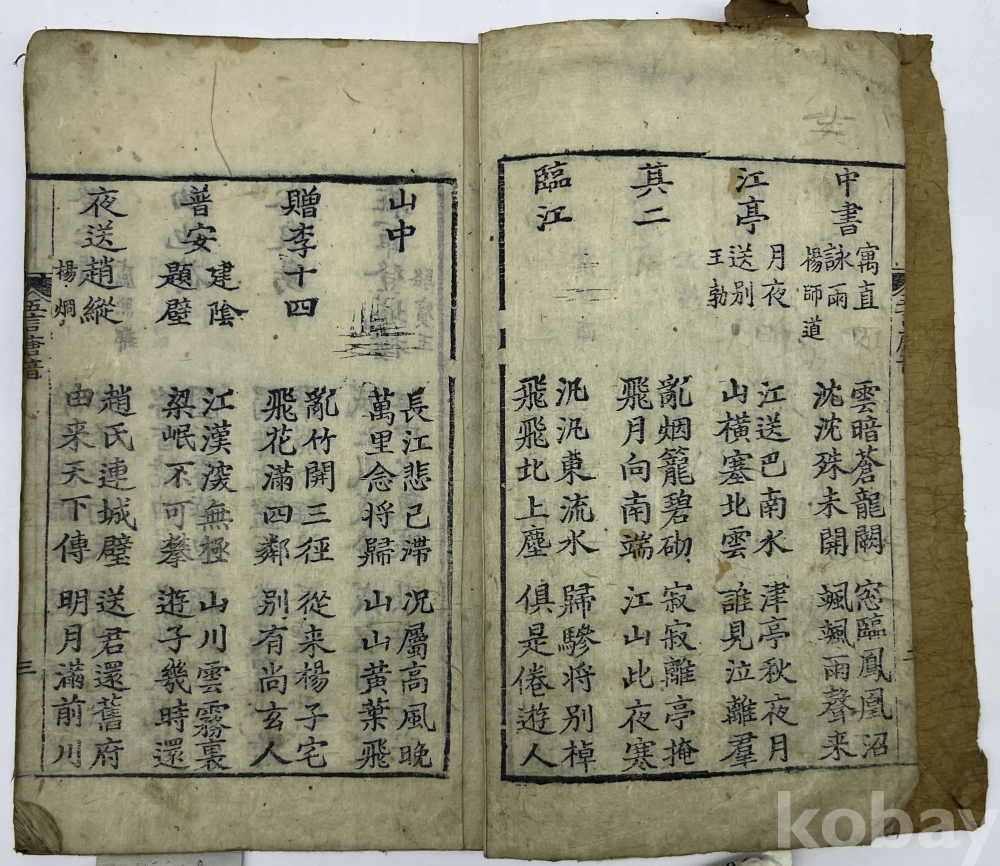 中書
寓直
詠雨
楊師道
雲暗蒼龍闕
沈沈殊未開
窓臨鳳凰沼
颯颯雨聲来
江亭
月夜
送別
王勃
江送巴南水
山橫塞北雲
津亭秋夜月
誰見泣離羣
其二
亂烟籠碧砌
飛月向南端
寂寂離亭掩
江山此夜寒
臨江
汎汎東流水
飛飛北上塵
歸驂将別棹
俱是倦遊人
山中
長江悲已滯
萬里念将歸
况屬高風晚
山山黃葉飛
贈李十四
亂竹開三徑
飛花滿四鄰
從来楊子宅
別有尚玄人
普安
建陰
題壁
江漢深無極
梁岷不可攀
山川雲霧裏
遊子幾時還
夜送趙縱
楊烱
趙氏連城璧
由来天下傳
送君還舊府
明月滿前川
五言唐音
三
kobay